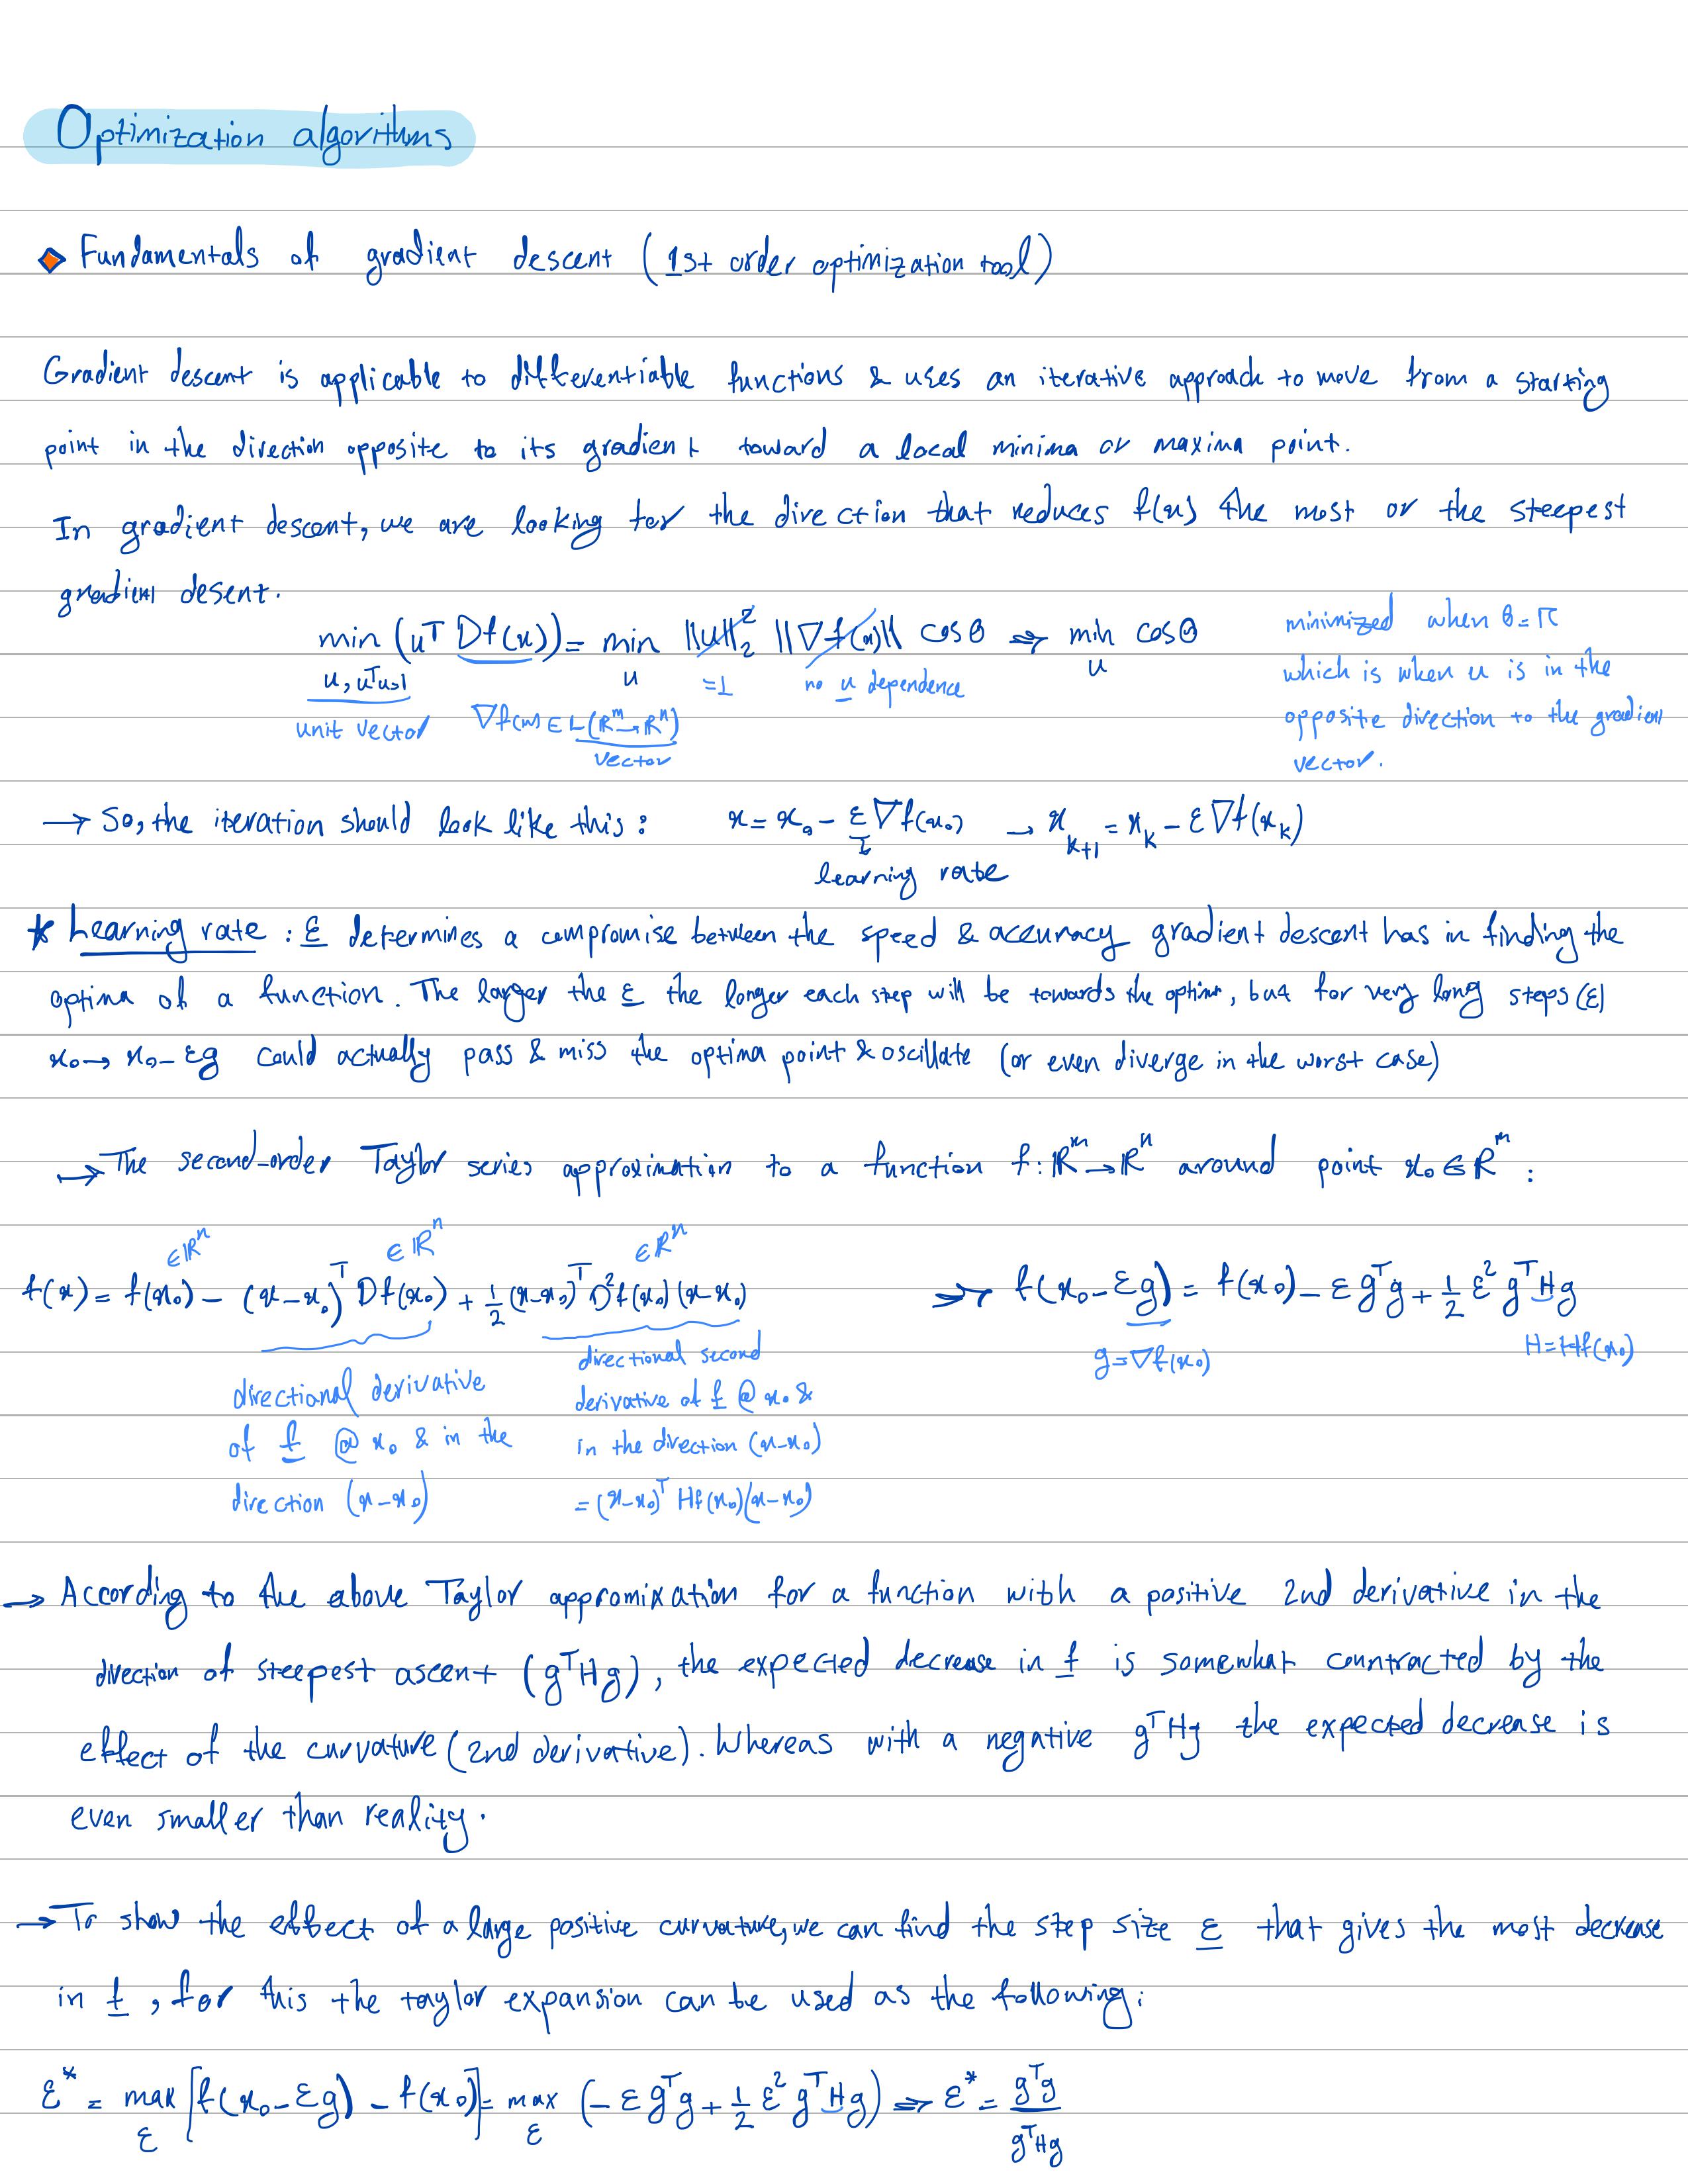 Optimization algorithms
Fundamentals of gradient descent (1st order optimization tool)
Gradient descent is applicable to differentiable functions & uses an iterative approach to move from a starting
point in the direction opposite to its gradient toward a local minima or maxima point.
In gradient descent, we are looking for the direction that reduces f(x) the most or the steepest
gradient desent.
min (uᵀ Df(x)) = min ||u||₂² ||∇f(x)|| cosθ ⇒ min cosθ
u, uᵀu=1 u =1 no u dependence u
unit vector ∇f(x) ∈ L(ℝᵐ→ℝⁿ)
vector
minimized when θ=π
which is when u is in the
opposite direction to the gradient
vector.
→ So, the iteration should look like this: x = x₀ - ε∇f(x₀) → xₖ₊₁ = xₖ - ε∇f(xₖ)
learning rate
* Learning rate : ε determines a compromise between the speed & accuracy gradient descent has in finding the
optima of a function. The larger the ε the longer each step will be towards the optima, but for very long steps (ε)
x₀→ x₀-εg could actually pass & miss the optima point & oscillate (or even diverge in the worst case)
→ The second-order Taylor series approximation to a function f:ℝᵐ→ℝⁿ around point x₀∈ℝᵐ :
∈ℝⁿ ∈ℝⁿ ∈ℝⁿ
f(x) = f(x₀) - (x-x₀)ᵀ Df(x₀) + 1/2 (x-x₀)ᵀ D²f(x₀) (x-x₀) ⇒ f(x₀-εg) = f(x₀) - ε gᵀg + 1/2 ε² gᵀHg
g=∇f(x₀) H=Hf(x₀)
directional derivative
of f @ x₀ & in the
direction (x-x₀)
directional second
derivative of f @ x₀ &
in the direction (x-x₀)
= (x-x₀)ᵀ Hf(x₀)(x-x₀)
→ According to the above Taylor appromixation for a function with a positive 2nd derivative in the
direction of steepest ascent (gᵀHg), the expected decrease in f is somewhat countracted by the
effect of the curvature (2nd derivative). Whereas with a negative gᵀHg the expected decrease is
even smaller than reality.
→ To show the effect of a large positive curvature, we can find the step size ε that gives the most decrease
in f, for this the taylor expansion can be used as the following:
ε* = max [f(x₀-εg) - f(x₀)] = max (-ε gᵀg + 1/2 ε² gᵀHg) ⇒ ε* = gᵀg / gᵀHg
ε ε